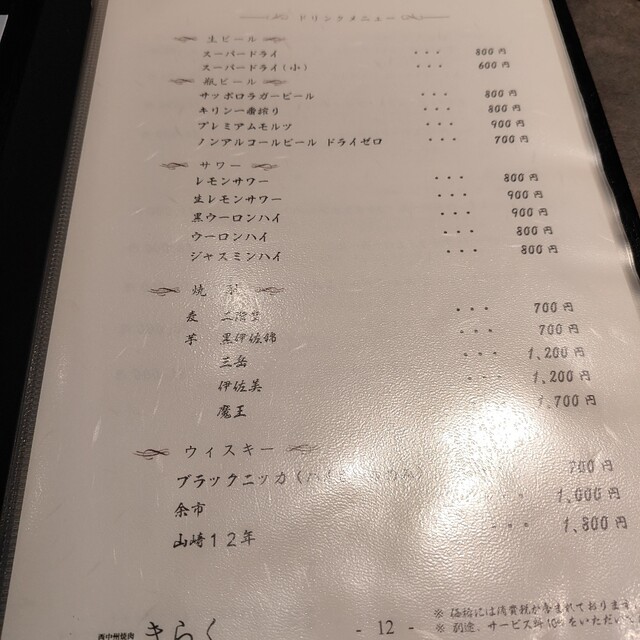 ドリンクメニュー
生ビール
スーパードライ ・・・ 800円
スーパードライ(小) ・・・ 600円
瓶ビール
サッポロラガービール ・・・ 800円
キリン一番搾り ・・・ 800円
プレミアムモルツ ・・・ 900円
ノンアルコールビール ドライゼロ ・・・ 700円
サワー
レモンサワー ・・・ 800円
生レモンサワー ・・・ 900円
黒ウーロンハイ ・・・ 900円
ウーロンハイ ・・・ 800円
ジャスミンハイ ・・・ 800円
焼
麦 二階堂 ・・・ 700円
芋 黒伊佐錦 ・・・ 700円
三岳 ・・・ 1,200円
伊佐美 ・・・ 1,200円
魔王 1,700円
ウィスキー
ブラックニッカ 700円
余市 ・・・ 1,000円
山崎12年 ・・・ 1,800円
西中州焼肉 きらく
- 12 -
※ 価格には消費税が含まれております
※ 別途、サービス料10%をいただい